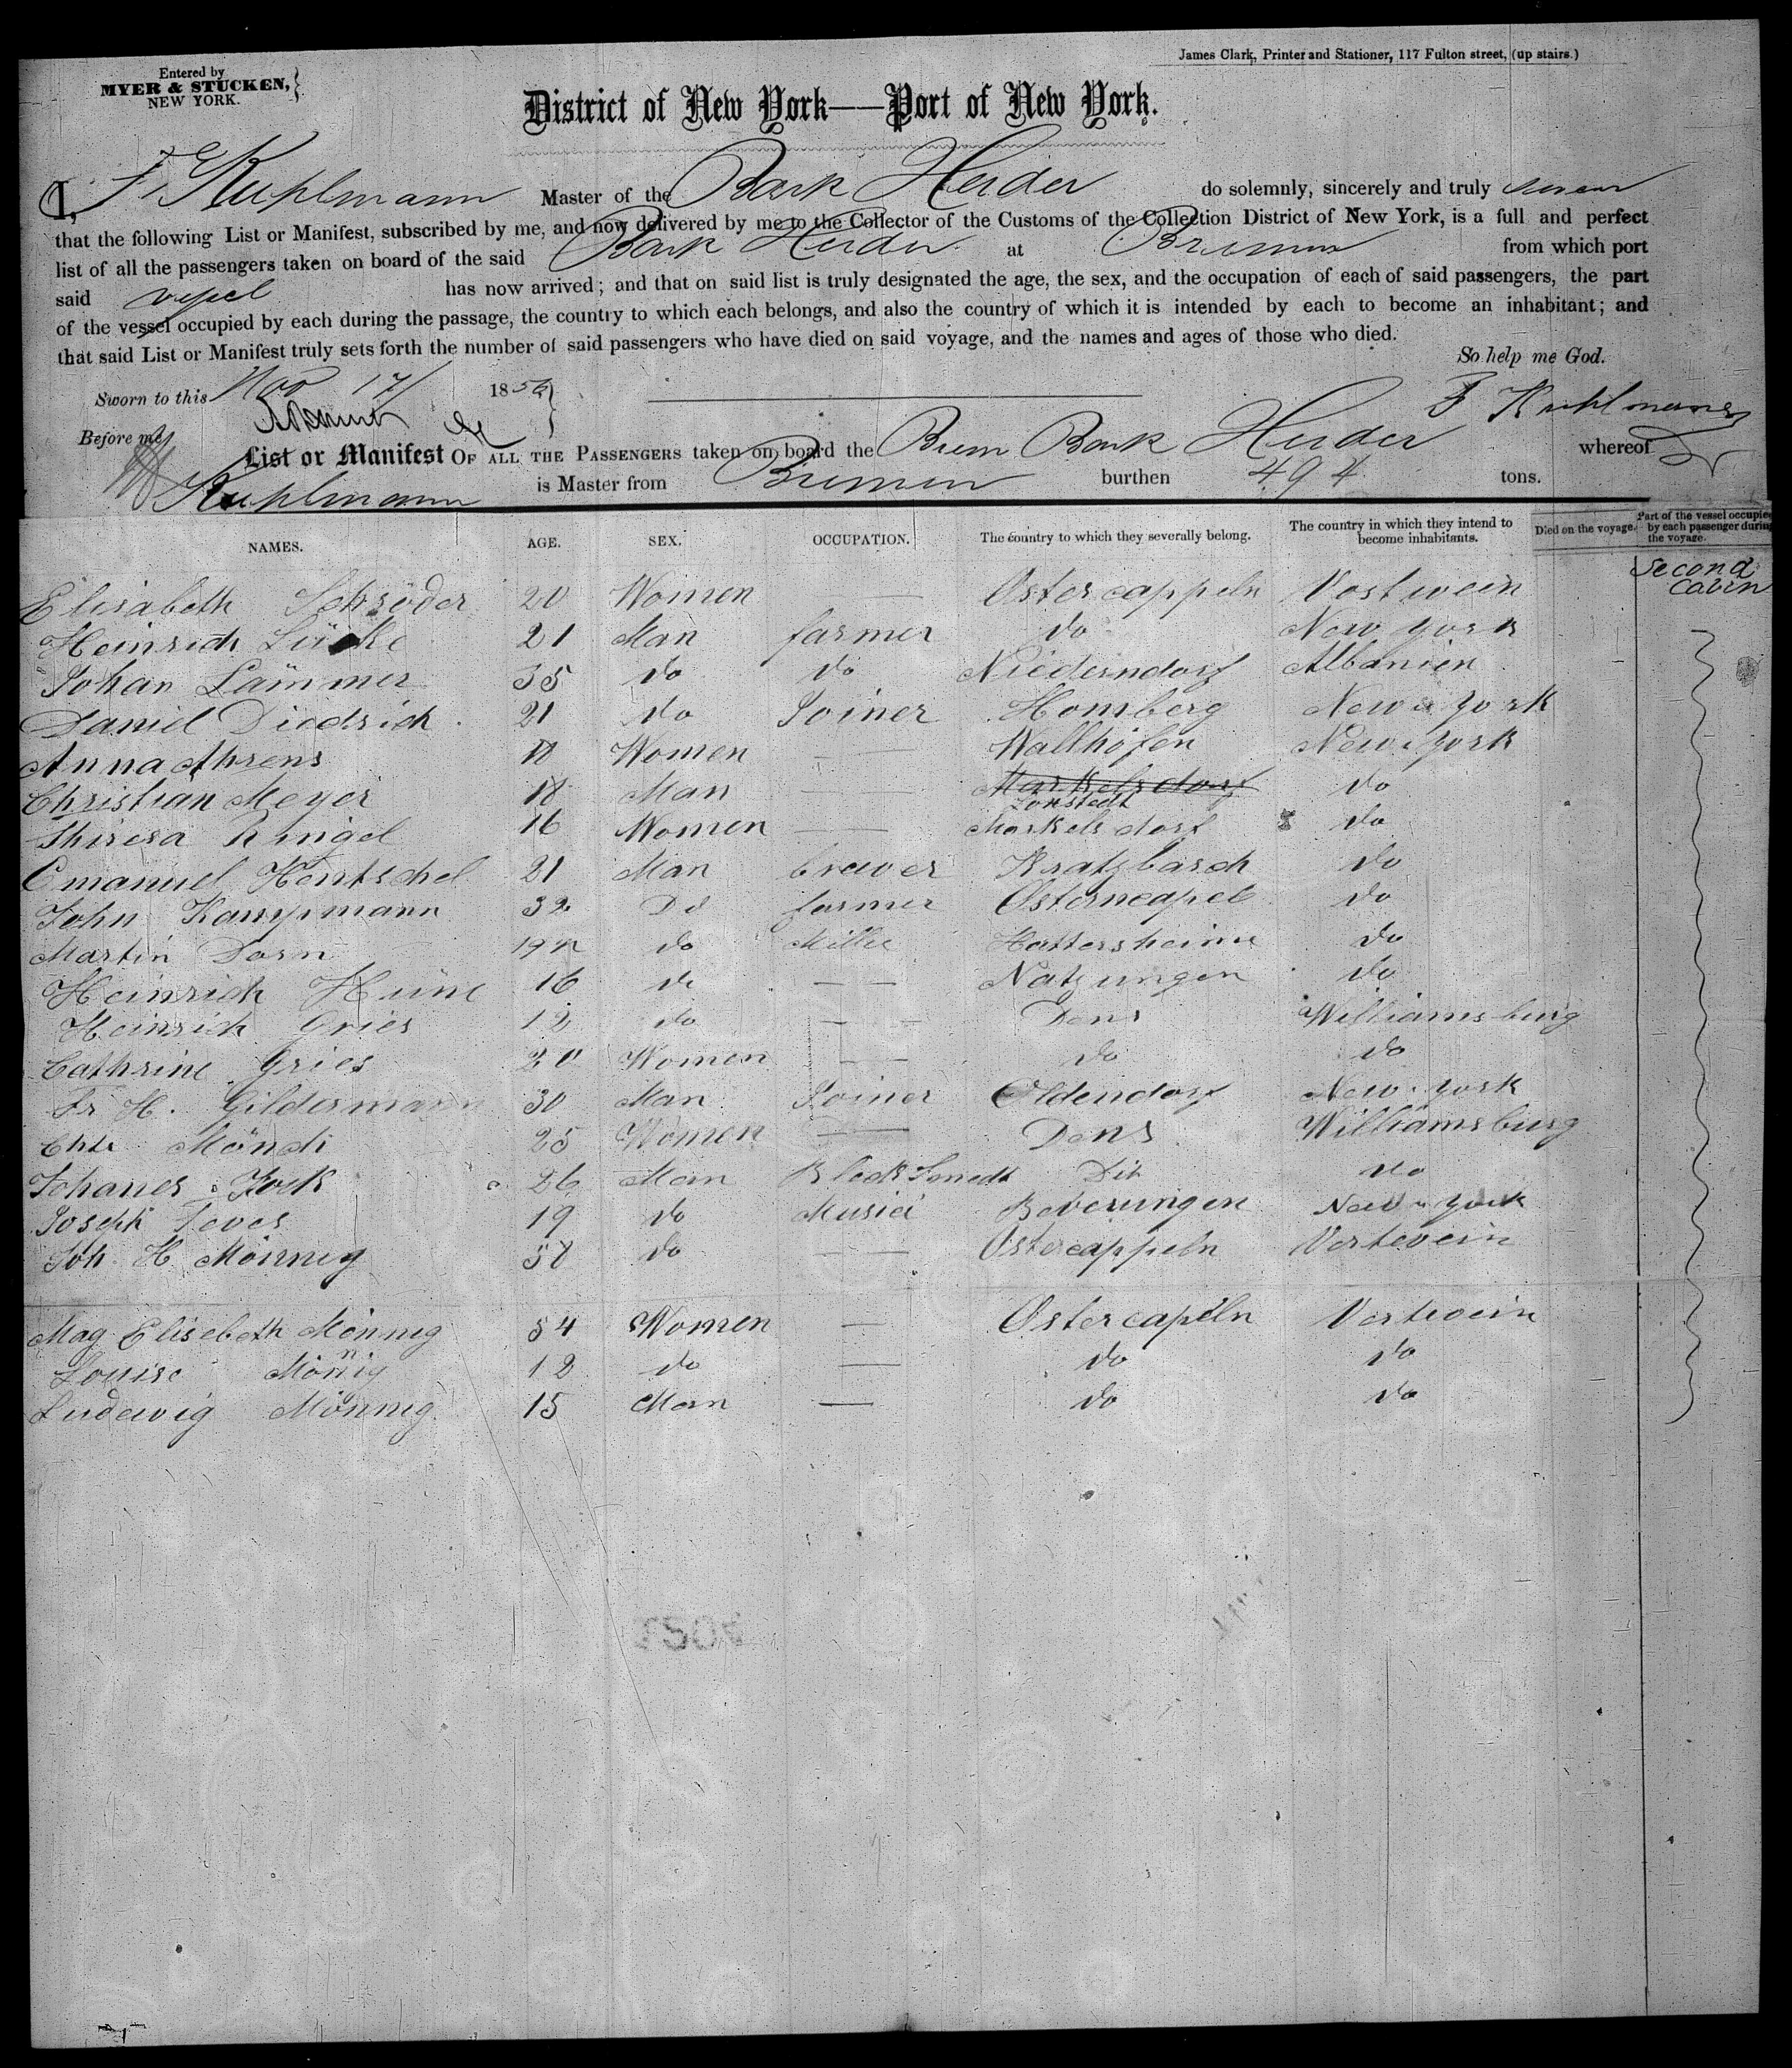 James Clark, Printer and Stationer, 117 Fulton street, (up stairs.)
Entered by
MYER & STUCKEN,
NEW YORK.
District of New York—Port of New York.
I, F Kuhlmann Master of the Bark Herder do solemnly, sincerely and truly swear
that the following List or Manifest, subscribed by me, and now delivered by me to the Collector of the Customs of the Collection District of New York, is a full and perfect
list of all the passengers taken on board of the said Bark Herder at Bremen from which port
said vessel has now arrived; and that on said list is truly designated the age, the sex, and the occupation of each of said passengers, the part
of the vessel occupied by each during the passage, the country to which each belongs, and also the country of which it is intended by each to become an inhabitant; and
that said List or Manifest truly sets forth the number of said passengers who have died on said voyage, and the names and ages of those who died.
So help me God.
Sworn to this Nov 17 1856
F Kuhlmann
Before me
List or Manifest OF ALL THE PASSENGERS taken on board the Brem Bark Herder whereof
Kuhlmann is Master from Bremen burthen 494 tons.
NAMES. AGE. SEX. OCCUPATION. The country to which they severally belong. The country in which they intend to become inhabitants. Died on the voyage. Part of the vessel occupied by each passenger during the voyage.
Second Cabin
Elisabeth Schröder 20 Women — Ostercappeln Vostwein
Heinrich Lücke 21 Man farmer do New york
Johan Lämmer 35 do do Niederndorf Albanien
Daniel Diedrich 21 do Joiner Homberg New york
Anna Ahrens 18 Women — Wallhöfen New york
Christian Meyer 18 Man — Markelsdorf Zonstedt do
Theresa Ringel 16 Women — Markelsdorf do
Emanuel Hentschel 21 Man brewer Kratzbarch do
John Kampmann 32 Do farmer Osterncapel do
Martin Dorn 19 do Miller Hattersheim do
Heinrich Hüne 16 do — — Natzungen do
Heinrich Gries 12 do — — Dens Williamsburg
Cathrine Gries 20 Women — Do do
Fr H. Gildermann 30 Man Joiner Oldendorf New york
Chte Möndi 25 Women — Dens Williamsburg
Johanes Fock 26 Man BlackSmedt Dit do
Joseph Teves 19 do Musici Beverungen New york
Joh. H Mönnig 58 do — Ostercappeln Vertevein
Mag Elisebeth Mönnig 54 Women — Ostercapeln Vertevein
Louise Mönnig 12 do — do do
Ludewig Mönnig 15 Man — do do